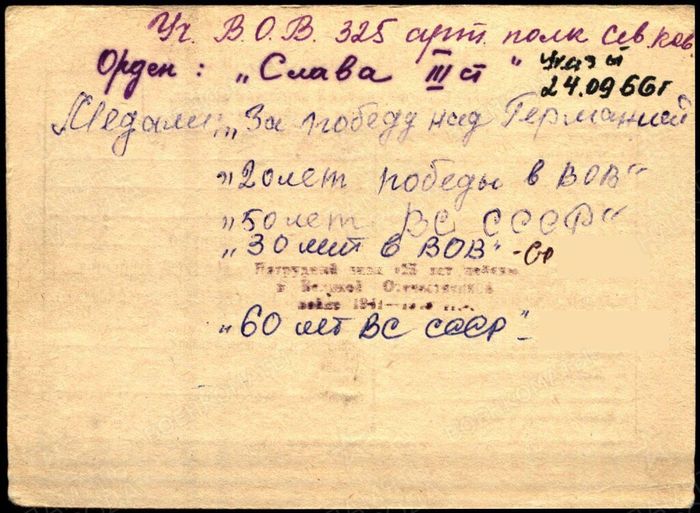 Уч. В.О.В. 325 арт. полк Сев. Кав.
Орден: "Слава III ст"
24.09.66г
Медали: "За победу над Германией"
"20 лет победы в ВОВ"
"50 лет ВС СССР"
"30 лет в ВОВ"
Нагрудный знак «25 лет победы
в Великой Отечественной
войне 1941—1945 гг.»
"60 лет ВС СССР"